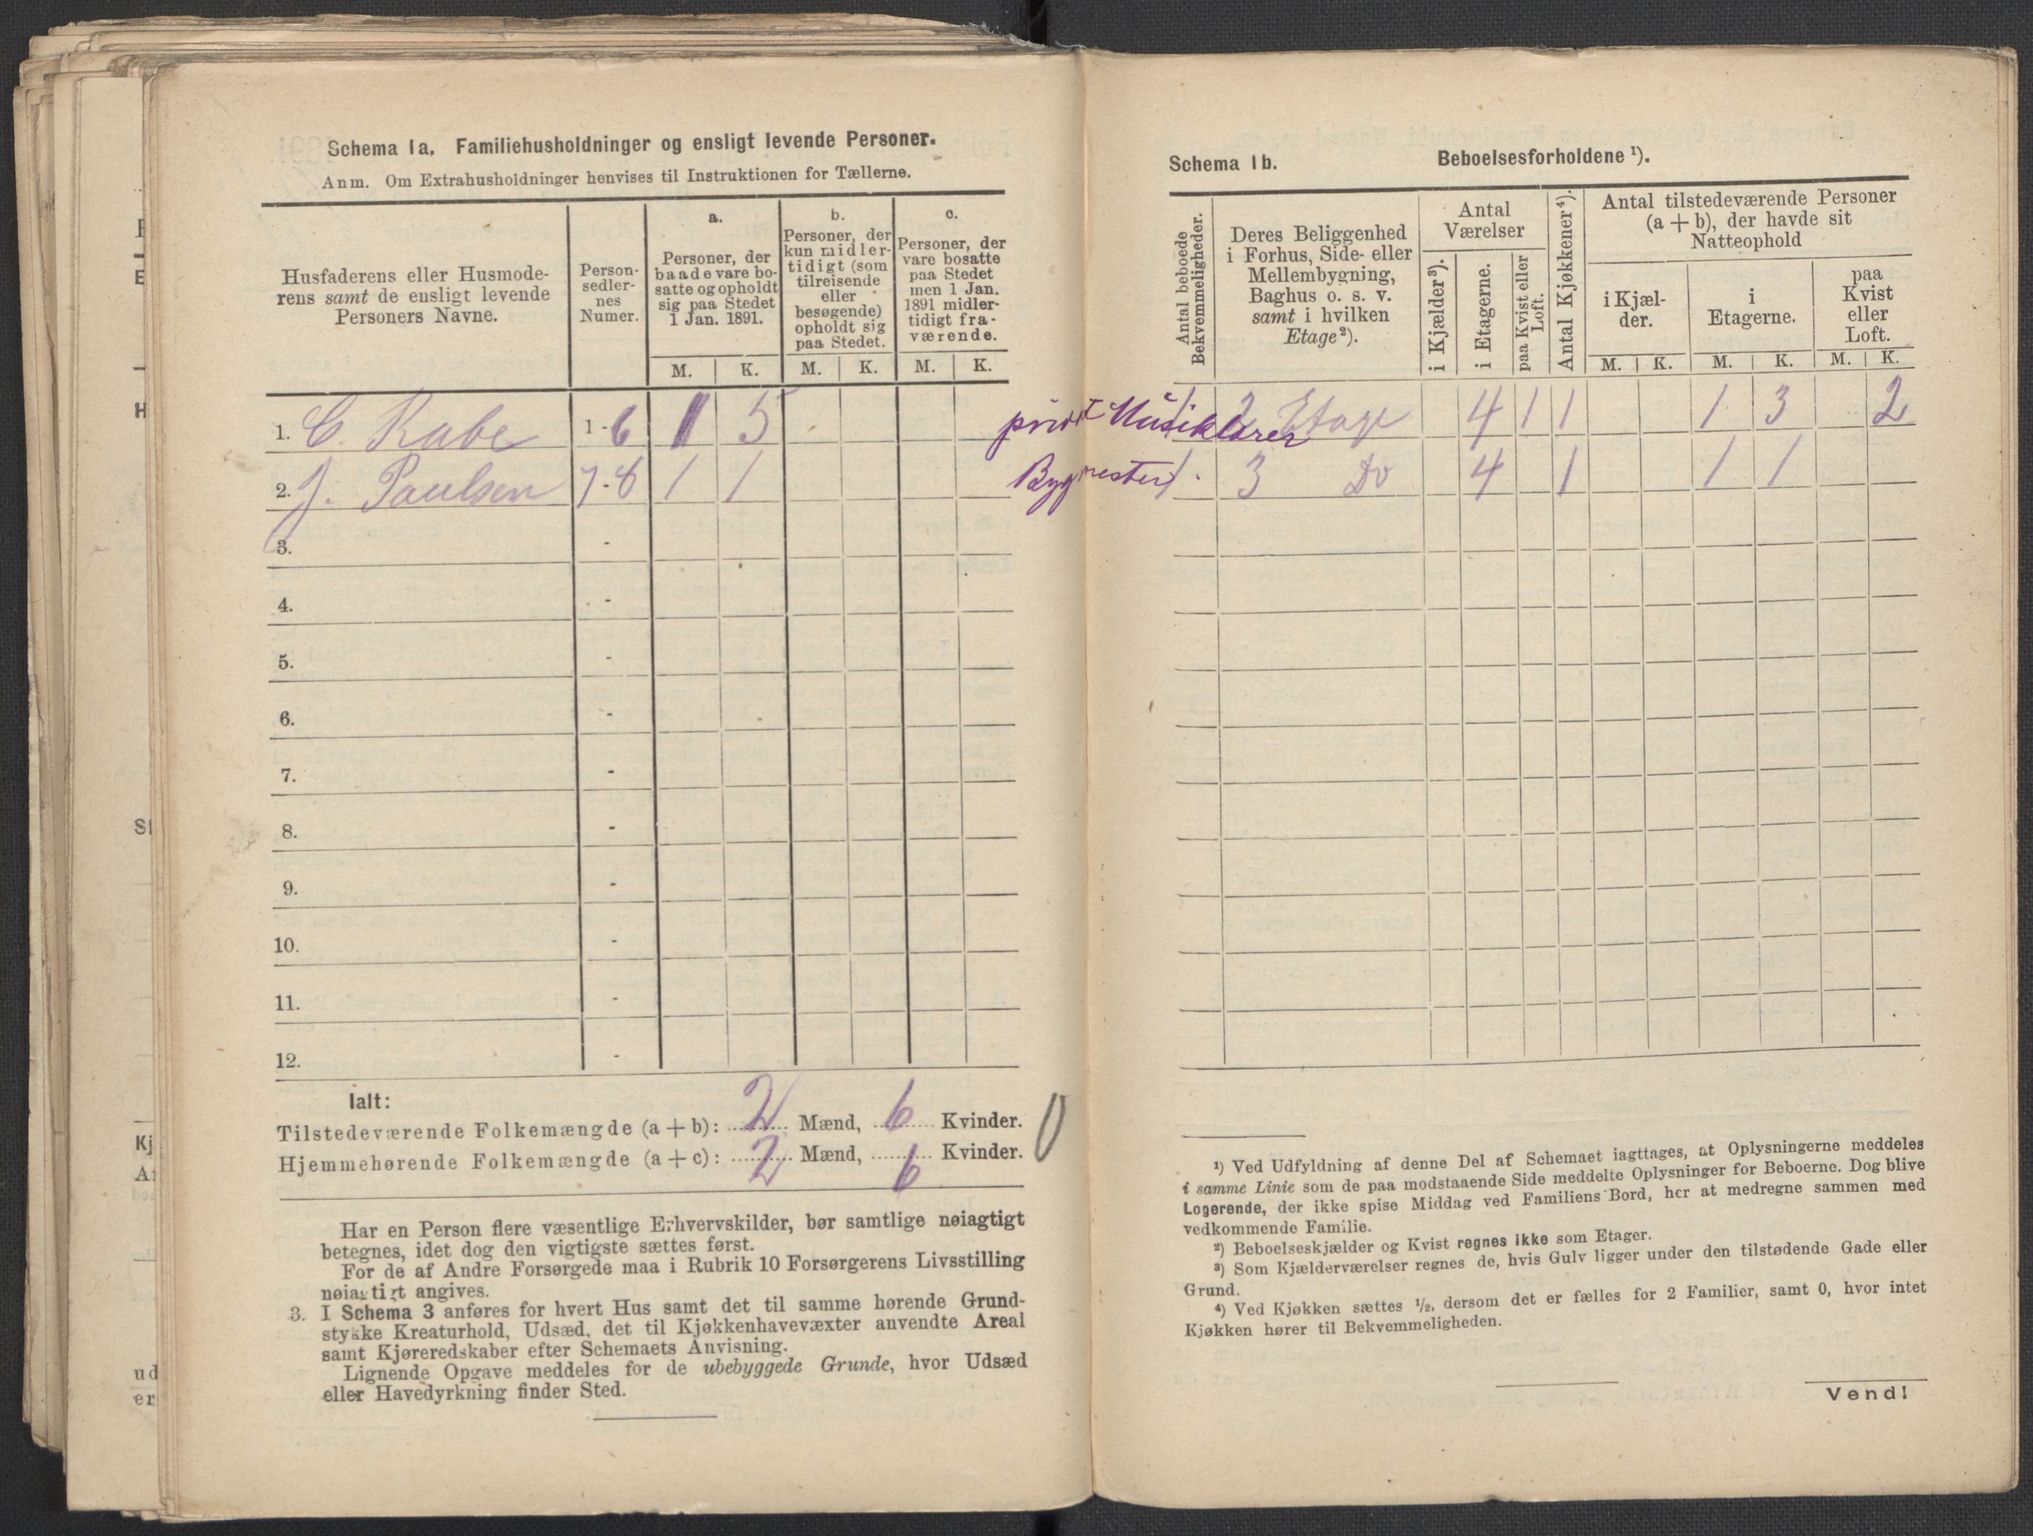 Schema 1a. Familiehusholdninger og ensligt levende Personer.
Anm. Om Extrahusholdninger henvises til Instruktionen for Tællerne.
Husfaderens eller Husmode-
rens samt de ensligt levende
Personers Navne.
Person-
sedler-
nes
Numer.
a.
Personer, der
baade vare bo-
satte og opholdt
sig paa Stedet
1 Jan. 1891.
b.
Personer, der
kun midler-
tidigt (som
tilreisende
eller
besøgende)
opholdt sig
paa Stedet.
c.
Personer, der
vare bosatte
paa Stedet
men 1 Jan.
1891 midler-
tidigt fra-
værende.
M. K. M. K. M. K.
1. C. Rabe 1-6 1 5
2. J. Paulsen 7-8 1 1
3. -
4. -
5. -
6. -
7. -
8. -
9. -
10. -
11. -
12. -
Ialt:
Tilstedeværende Folkemængde (a + b): 2 Mænd, 6 Kvinder.
Hjemmehørende Folkemængde (a + c): 2 Mænd, 6 Kvinder.
Har en Person flere væsentlige Erhvervskilder, bør samtlige nøiagtigt
betegnes, idet dog den vigtigste sættes først.
For de af Andre Forsørgede maa i Rubrik 10 Forsørgerens Livsstilling
nøiagtigt angives.
3. I Schema 3 anføres for hvert Hus samt det til samme hørende Grund-
stykke Kreaturhold, Udsæd, det til Kjøkkenhavevæxter anvendte Areal
samt Kjøreredskaber efter Schemaets Anvisning.
Lignende Opgave meddeles for de ubebyggede Grunde, hvor Udsæd
eller Havedyrkning finder Sted.
Schema 1b. Beboelsesforholdene ¹).
Antal beboede
Bekvemmeligheder.
Deres Beliggenhed
i Forhus, Side- eller
Mellembygning,
Baghus o. s. v.
samt i hvilken
Etage ²).
Antal
Værelser
i Kjælder ³).
i Etagerne.
paa Kvist eller
Loft.
Antal Kjøkkener ⁴).
Antal tilstedeværende Personer
(a + b), der havde sit
Natteophold
i Kjæl-
der.
i
Etagerne.
paa
Kvist
eller
Loft.
M. K. M. K. M. K.
privat Musiklærer 1 2 Etage 4 1 1 1 3 2
Bygmester 1 3 Do 4 1 1 1
¹) Ved Udfyldning af denne Del af Schemaet iagttages, at Oplysningerne meddeles
i samme Linie som de paa modstaaende Side meddelte Oplysninger for Beboerne. Dog blive
Logerende, der ikke spise Middag ved Familiens Bord, her at medregne sammen med
vedkommende Familie.
²) Beboelseskjælder og Kvist regnes ikke som Etager.
³) Som Kjælderværelser regnes de, hvis Gulv ligger under den tilstødende Gade eller
Grund.
⁴) Ved Kjøkken sættes ½, dersom det er fælles for 2 Familier, samt 0, hvor intet
Kjøkken hører til Bekvemmeligheden.
Vend!